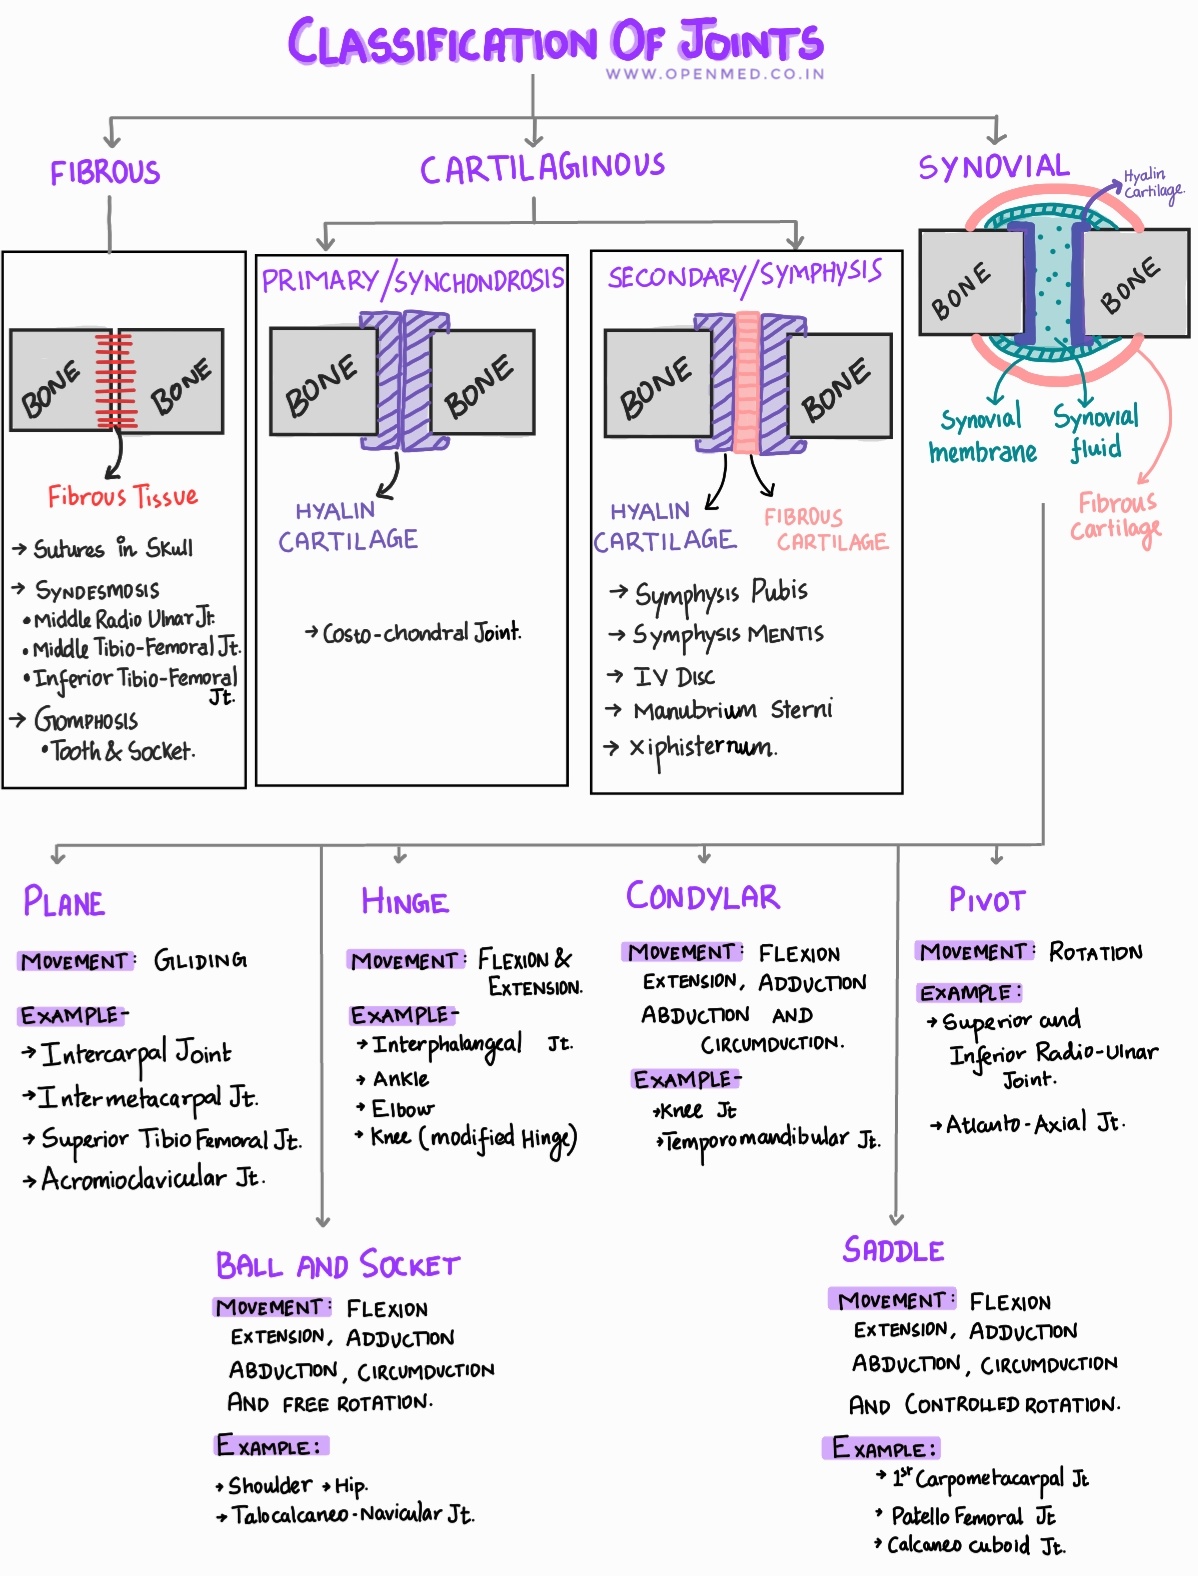 CLASSIFICATION OF JOINTS
WWW.OPENMED.CO.IN
FIBROUS
CARTILAGINOUS
SYNOVIAL
Hyalin
Cartilage.
BONE
BONE
Synovial
membrane
Synovial
fluid
Fibrous
Cartilage
BONE
BONE
Fibrous Tissue
→ Sutures in Skull
→ SYNDESMOSIS
• Middle Radio Ulnar Jt.
• Middle Tibio-Femoral Jt.
• Inferior Tibio-Femoral
Jt.
→ GOMPHOSIS
• Tooth & Socket.
PRIMARY/SYNCHONDROSIS
BONE
BONE
HYALIN
CARTILAGE
→ Costo-chondral Joint.
SECONDARY/SYMPHYSIS
BONE
BONE
HYALIN
CARTILAGE
FIBROUS
CARTILAGE
→ Symphysis Pubis
→ Symphysis MENTIS
→ IV Disc
→ Manubrium Sterni
→ Xiphisternum.
PLANE
MOVEMENT: GLIDING
EXAMPLE-
→ Intercarpal Joint
→ Intermetacarpal Jt.
→ Superior Tibio Femoral Jt.
→ Acromioclavicular Jt.
HINGE
MOVEMENT: FLEXION &
EXTENSION.
EXAMPLE-
→ Interphalangeal Jt.
→ Ankle
→ Elbow
→ Knee (modified Hinge)
CONDYLAR
MOVEMENT: FLEXION
EXTENSION, ADDUCTION
ABDUCTION AND
CIRCUMDUCTION.
EXAMPLE-
→ Knee Jt
→ Temporomandibular Jt.
PIVOT
MOVEMENT: ROTATION
EXAMPLE:
→ Superior and
Inferior Radio-Ulnar
Joint.
→ Atlanto-Axial Jt.
BALL AND SOCKET
MOVEMENT: FLEXION
EXTENSION, ADDUCTION
ABDUCTION, CIRCUMDUCTION
AND FREE ROTATION.
EXAMPLE:
→ Shoulder → Hip.
→ Talocalcaneo-Navicular Jt.
SADDLE
MOVEMENT: FLEXION
EXTENSION, ADDUCTION
ABDUCTION, CIRCUMDUCTION
AND CONTROLLED ROTATION.
EXAMPLE:
→ 1st Carpometacarpal Jt
→ Patello Femoral Jt
→ Calcaneo cuboid Jt.